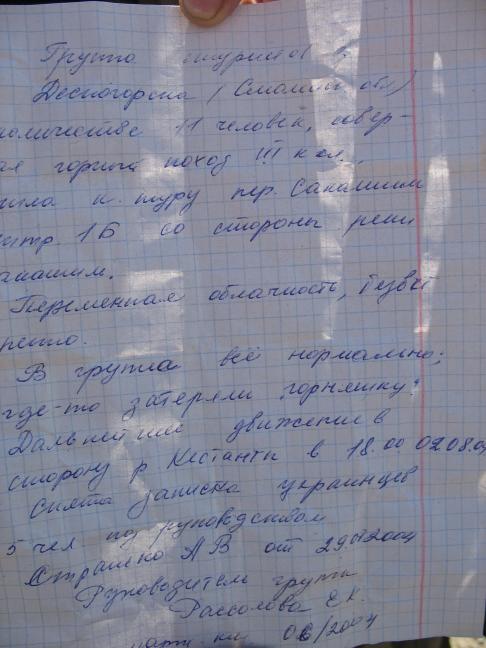 Группа туристов г.
Десногорска (Смолен. обл)
количестве 11 человек, совер-
горный поход III к.сл.,
к туру пер. Санашим
1Б со стороны реки
Переменная облачность,
В группе всё нормально;
где-то затеряли горняшку!
Дальнейшее движение в
сторону р. Кестанти в 18.00 02.08.04
Снята записка украинцев
5 чел под руководством
Страшко АВ от 29.07.2004
Руководитель группы
Рассолова Е.К.
06/2004